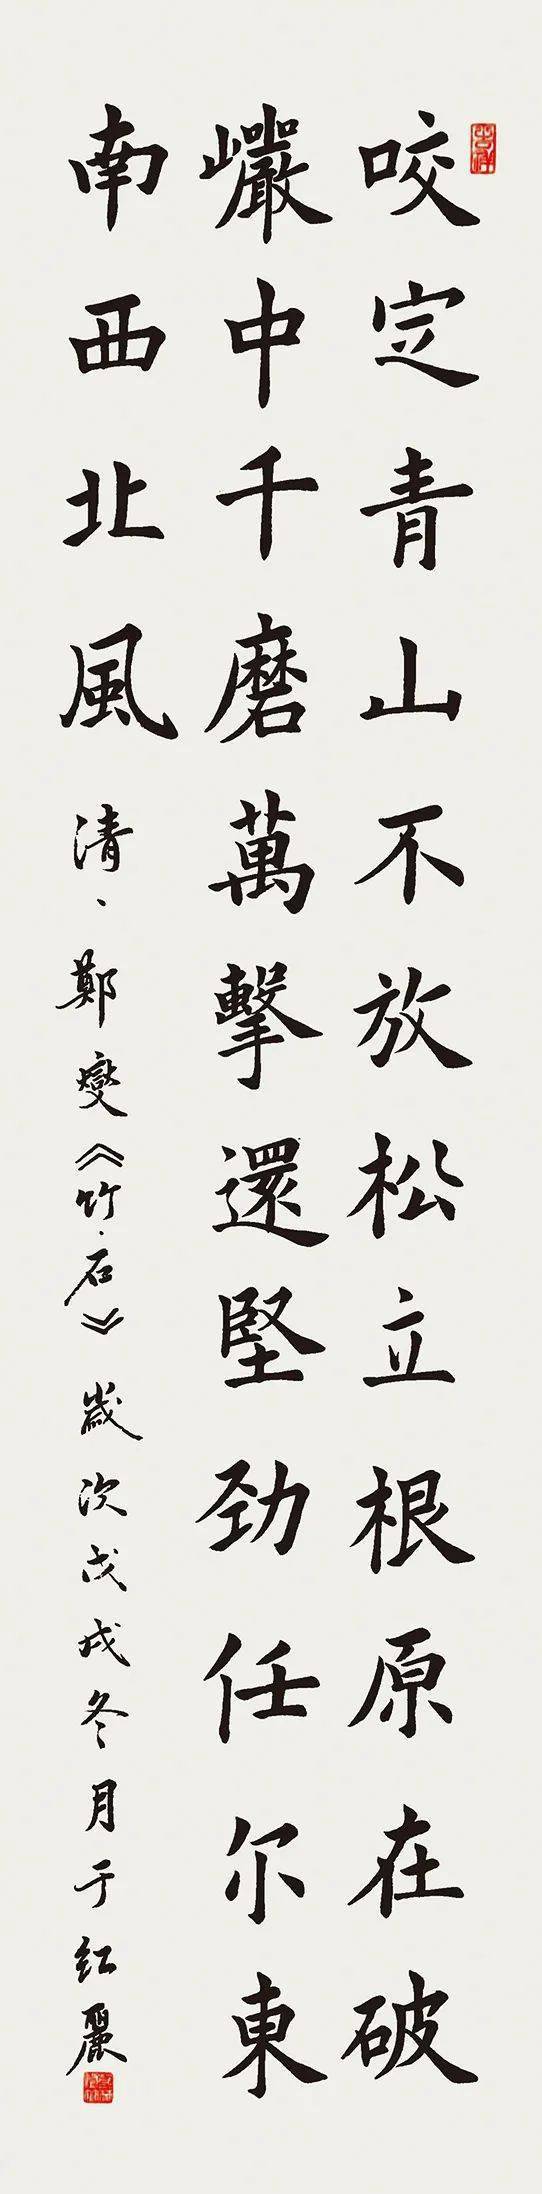 咬定青山不放松立根原在破
巖中千磨萬擊還堅劲任尔東
南西北風
清、鄭燮《竹·石》歲次戊戌冬月于红麗